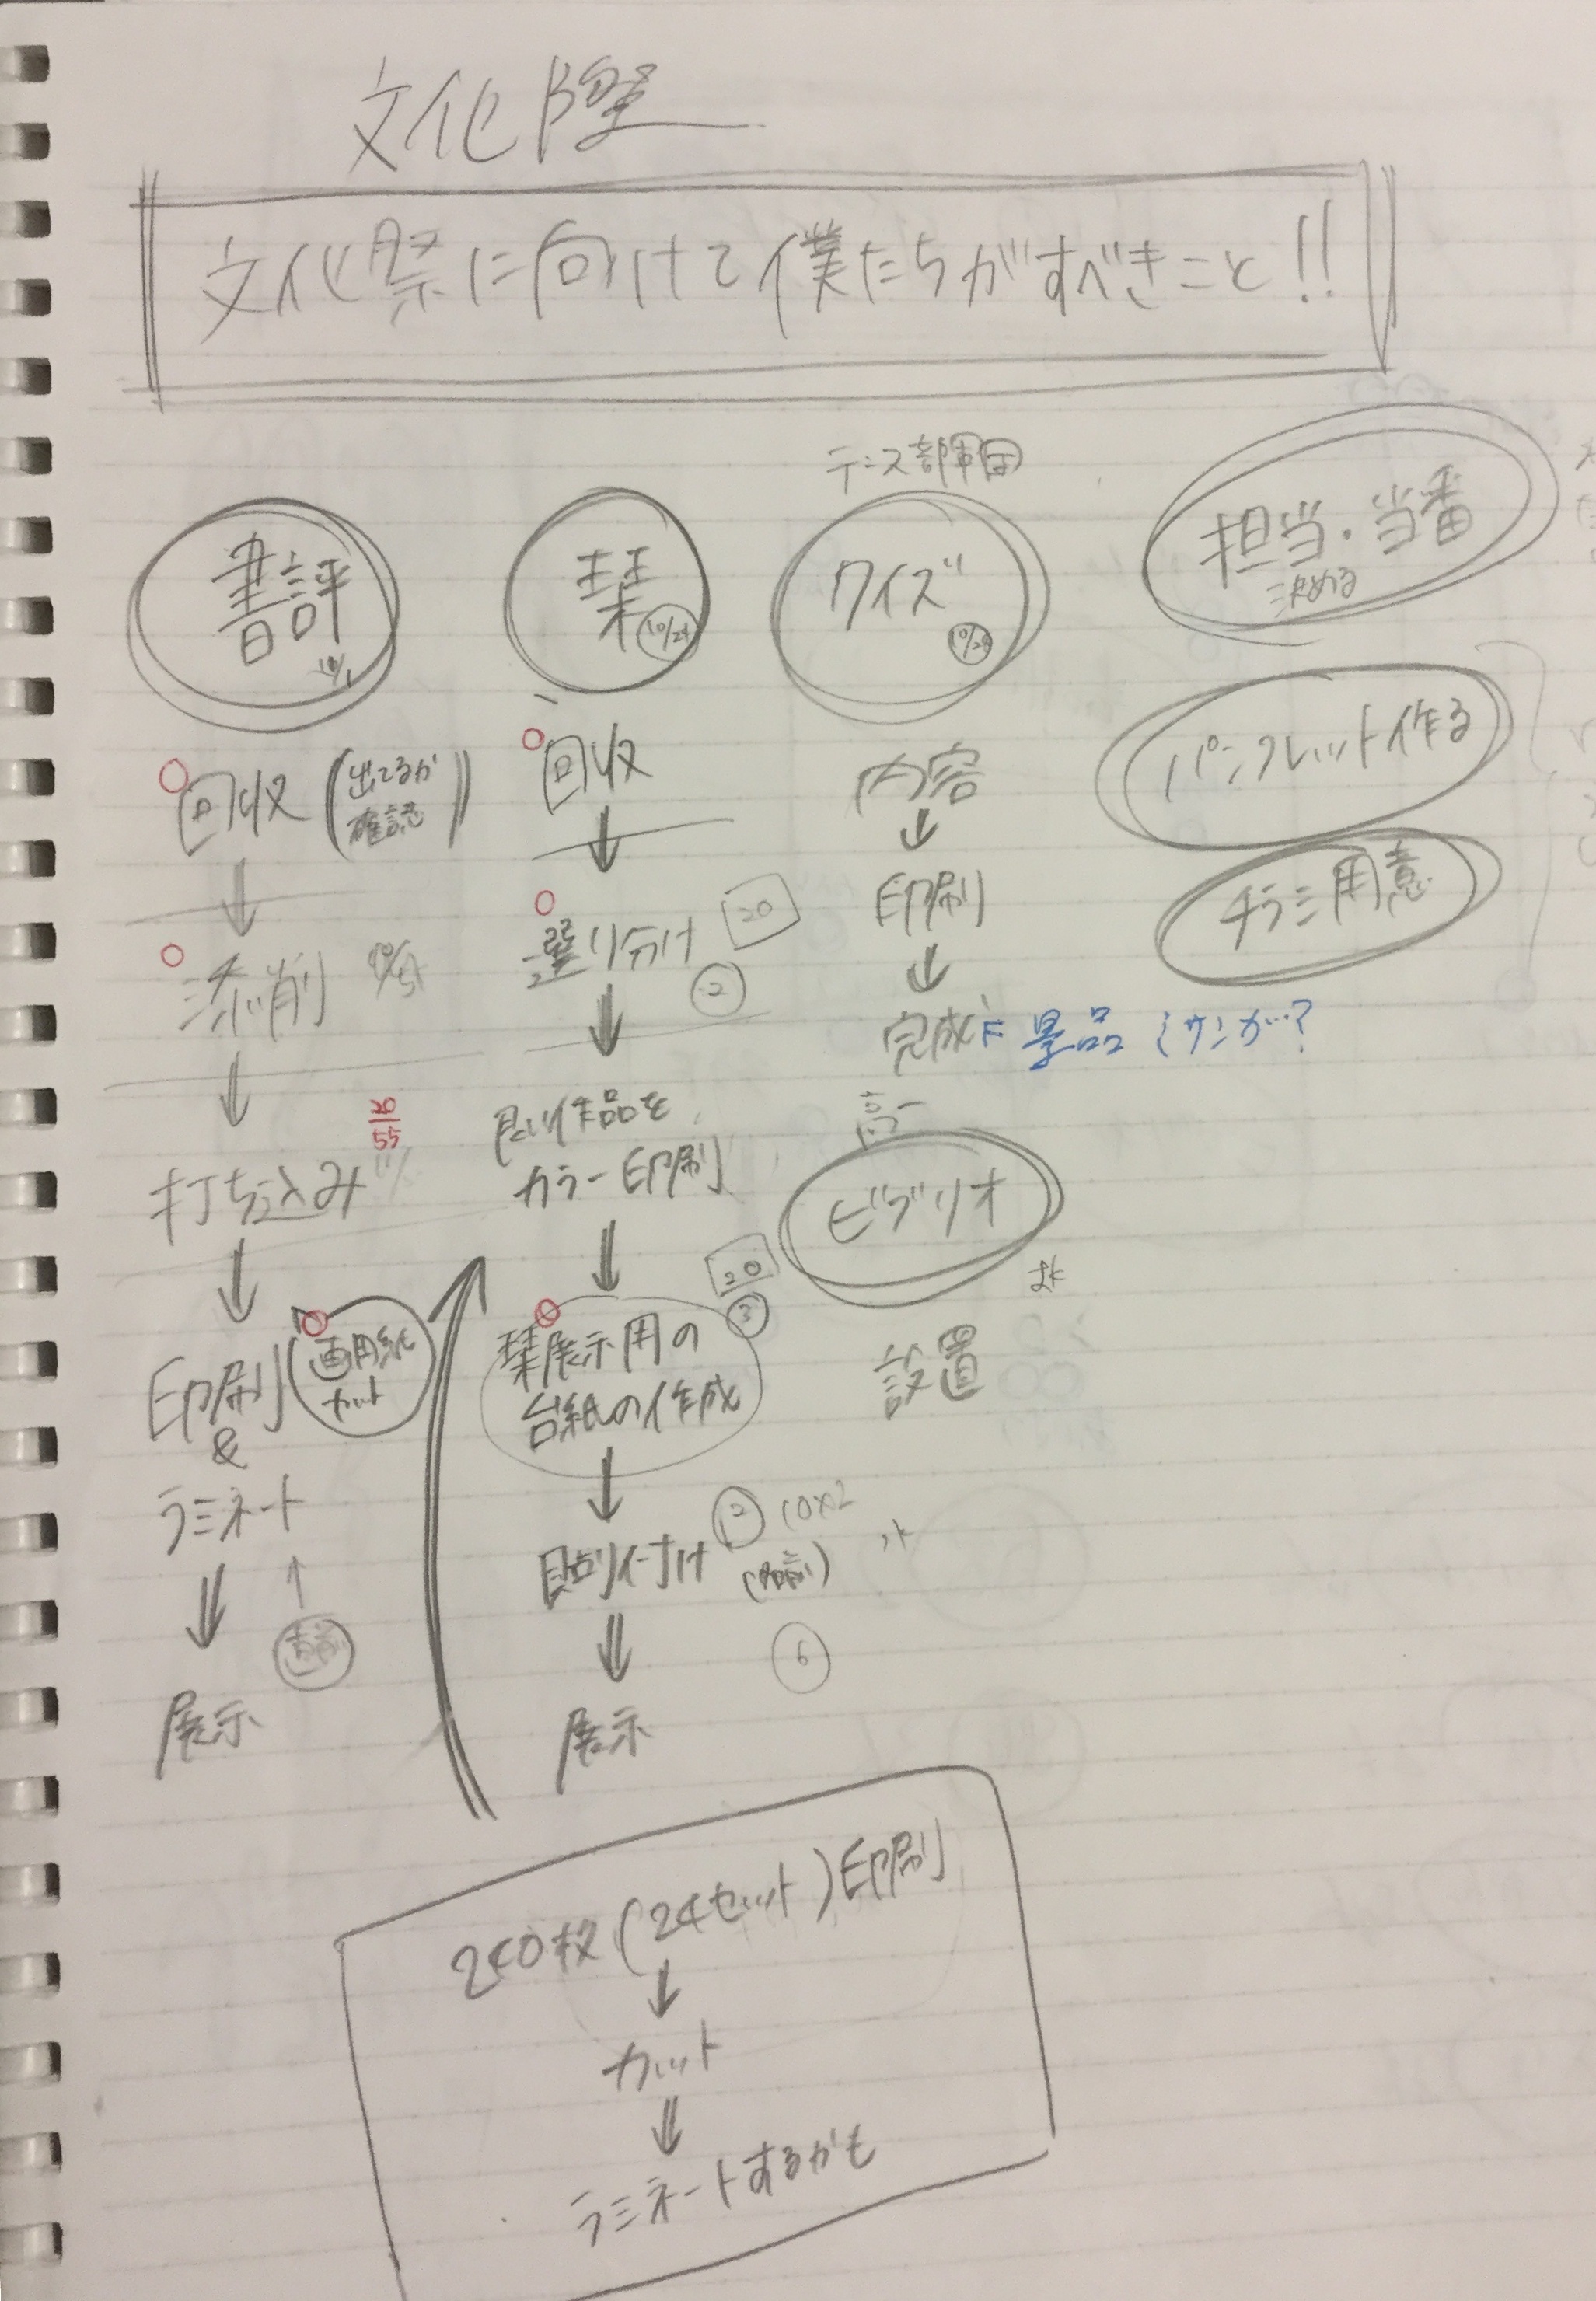 文化
文化祭に向けて僕たちがすべきこと!!
書評
10/1
回収
(出てるか
確認)
添削
20
55
打ち込み
印刷
画用紙
カット
&
ラミネート
展示
栞
10/24
回収
選り分け
20
2
良い作品を
カラー印刷
20
3
栞展示用の
台紙の作成
貼り付け
2
10×2
6
展示
テニス部軍団
クイズ
内容
印刷
完成
景品 ミサンガ…?
高一
ビブリオ
設置
担当・当番
決める
パンフレット作る
チラシ用意
240枚(24セット)印刷
カット
ラミネートするかも